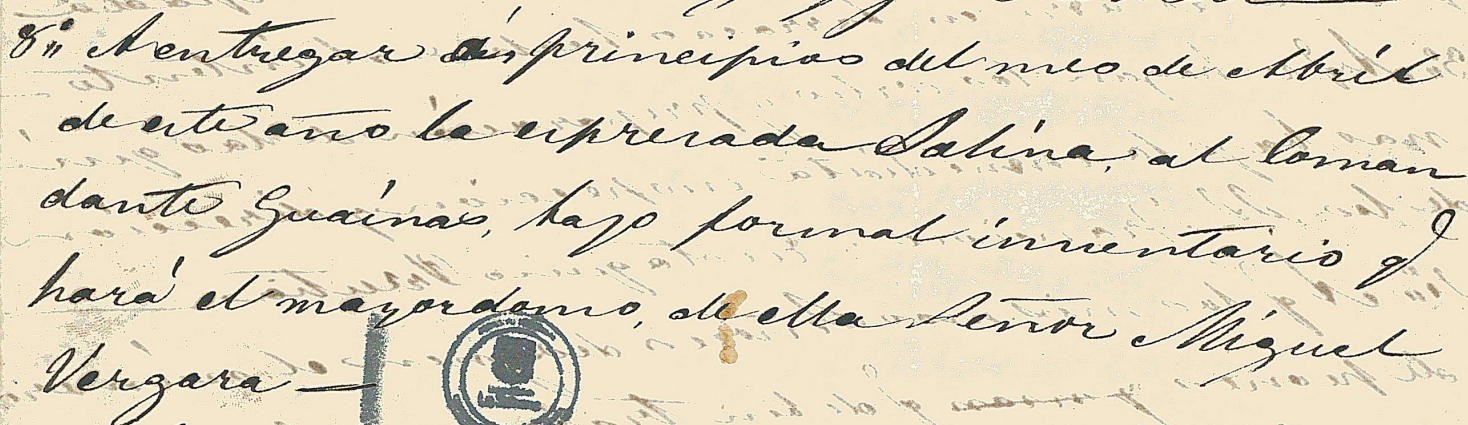 8ª A entregar á principios del mes de Abríl
de este año la espresada Salína, al Coman
dante Guaínas, bajo formal ínventario q
hará el mayordomo, de ella Señor Míguel
Vergara —